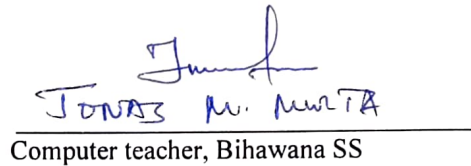 JONAS M.
Computer teacher, Bihawana SS